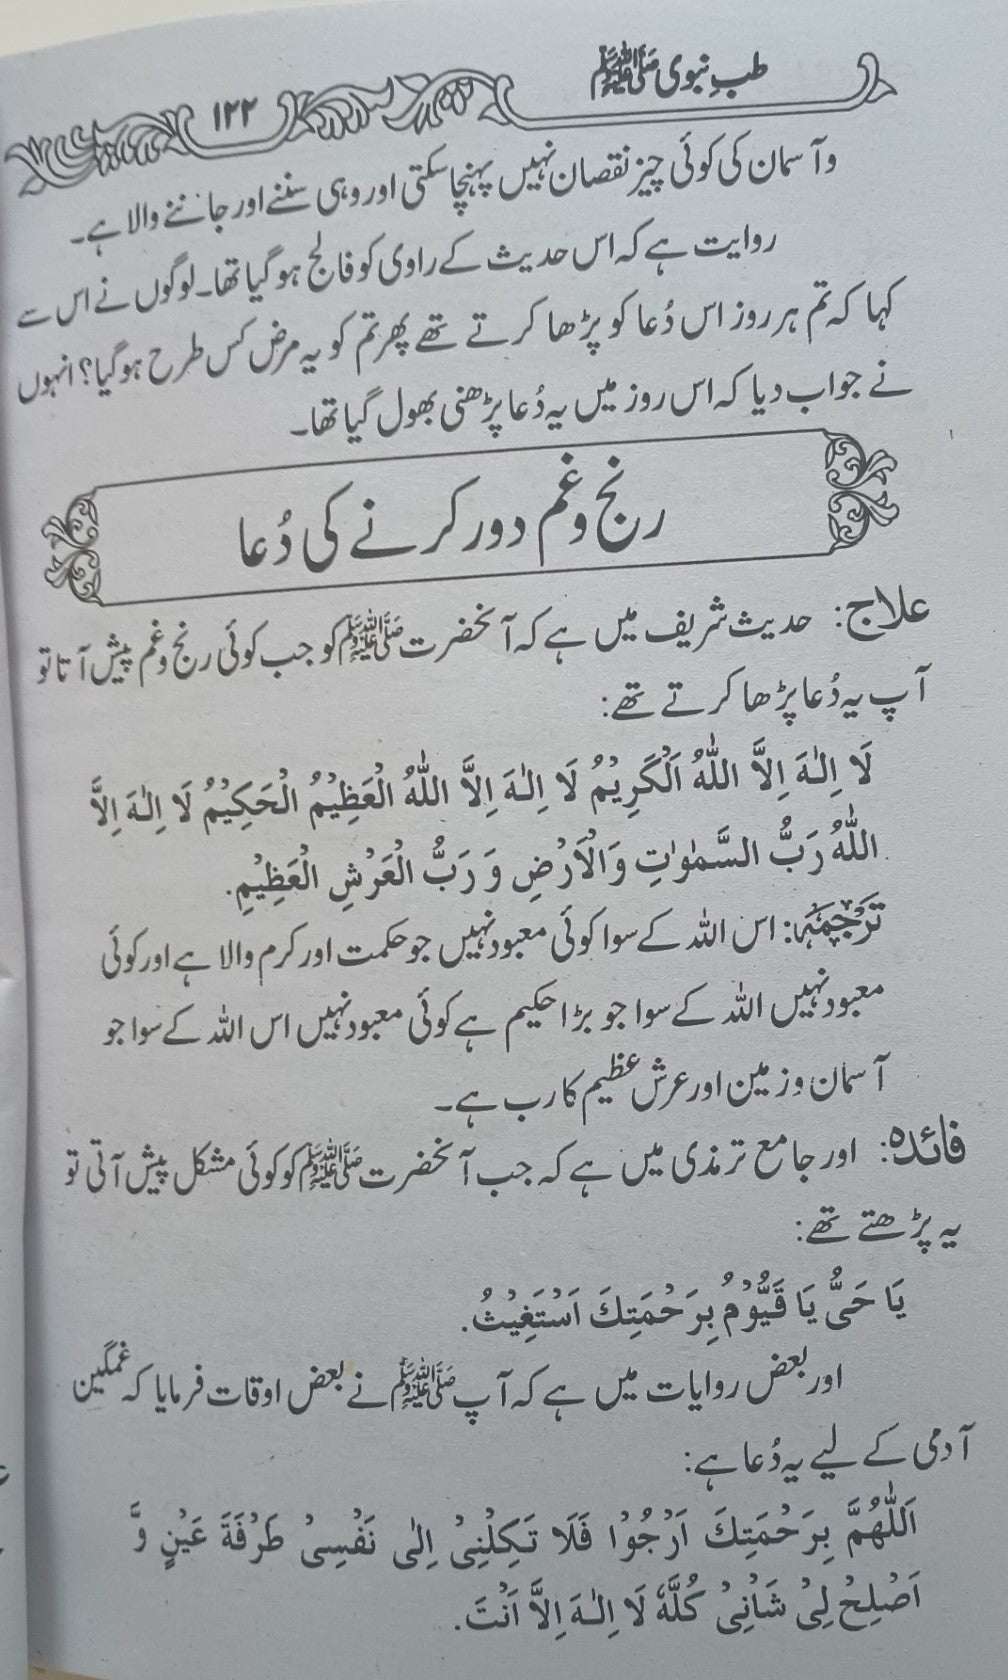 طبِ نبوی ﷺ
۱۲۲
و آسمان کی کوئی چیز نقصان نہیں پہنچا سکتی اور وہی سننے اور جاننے والا ہے۔
روایت ہے کہ اس حدیث کے راوی کو فالج ہو گیا تھا۔ لوگوں نے اس سے
کہا کہ تم ہر روز اس دُعا کو پڑھا کرتے تھے پھر تم کو یہ مرض کس طرح ہو گیا؟ انہوں
نے جواب دیا کہ اس روز میں یہ دُعا پڑھنی بھول گیا تھا۔
رنج و غم دور کرنے کی دُعا
علاج: حدیث شریف میں ہے کہ آنحضرت ﷺ کو جب کوئی رنج و غم پیش آتا تو
آپ یہ دُعا پڑھا کرتے تھے:
لَا اِلٰہَ اِلَّا اللّٰہُ الْکَرِیْمُ لَا اِلٰہَ اِلَّا اللّٰہُ الْعَظِیْمُ الْحَکِیْمُ لَا اِلٰہَ اِلَّا
اللّٰہُ رَبُّ السَّمٰوٰتِ وَالْاَرْضِ وَ رَبُّ الْعَرْشِ الْعَظِیْمِ.
تَرجَمَہ: اس اللہ کے سوا کوئی معبود نہیں جو حکمت اور کرم والا ہے اور کوئی
معبود نہیں اللہ کے سوا جو بڑا حکیم ہے کوئی معبود نہیں اس اللہ کے سوا جو
آسمان و زمین اور عرش عظیم کا رب ہے۔
فائدہ: اور جامع ترمذی میں ہے کہ جب آنحضرت ﷺ کو کوئی مشکل پیش آتی تو
یہ پڑھتے تھے:
یَا حَیُّ یَا قَیُّوْمُ بِرَحْمَتِکَ اَسْتَغِیْثُ.
اور بعض روایات میں ہے کہ آپ ﷺ نے بعض اوقات فرمایا کہ غمگین
آدمی کے لیے یہ دُعا ہے:
اَللّٰھُمَّ بِرَحْمَتِکَ اَرْجُوْا فَلَا تَکِلْنِیْ اِلٰی نَفْسِیْ طَرْفَۃَ عَیْنٍ وَّ
اَصْلِحْ لِیْ شَاْنِیْ کُلَّہٗ لَا اِلٰہَ اِلَّا اَنْتَ.